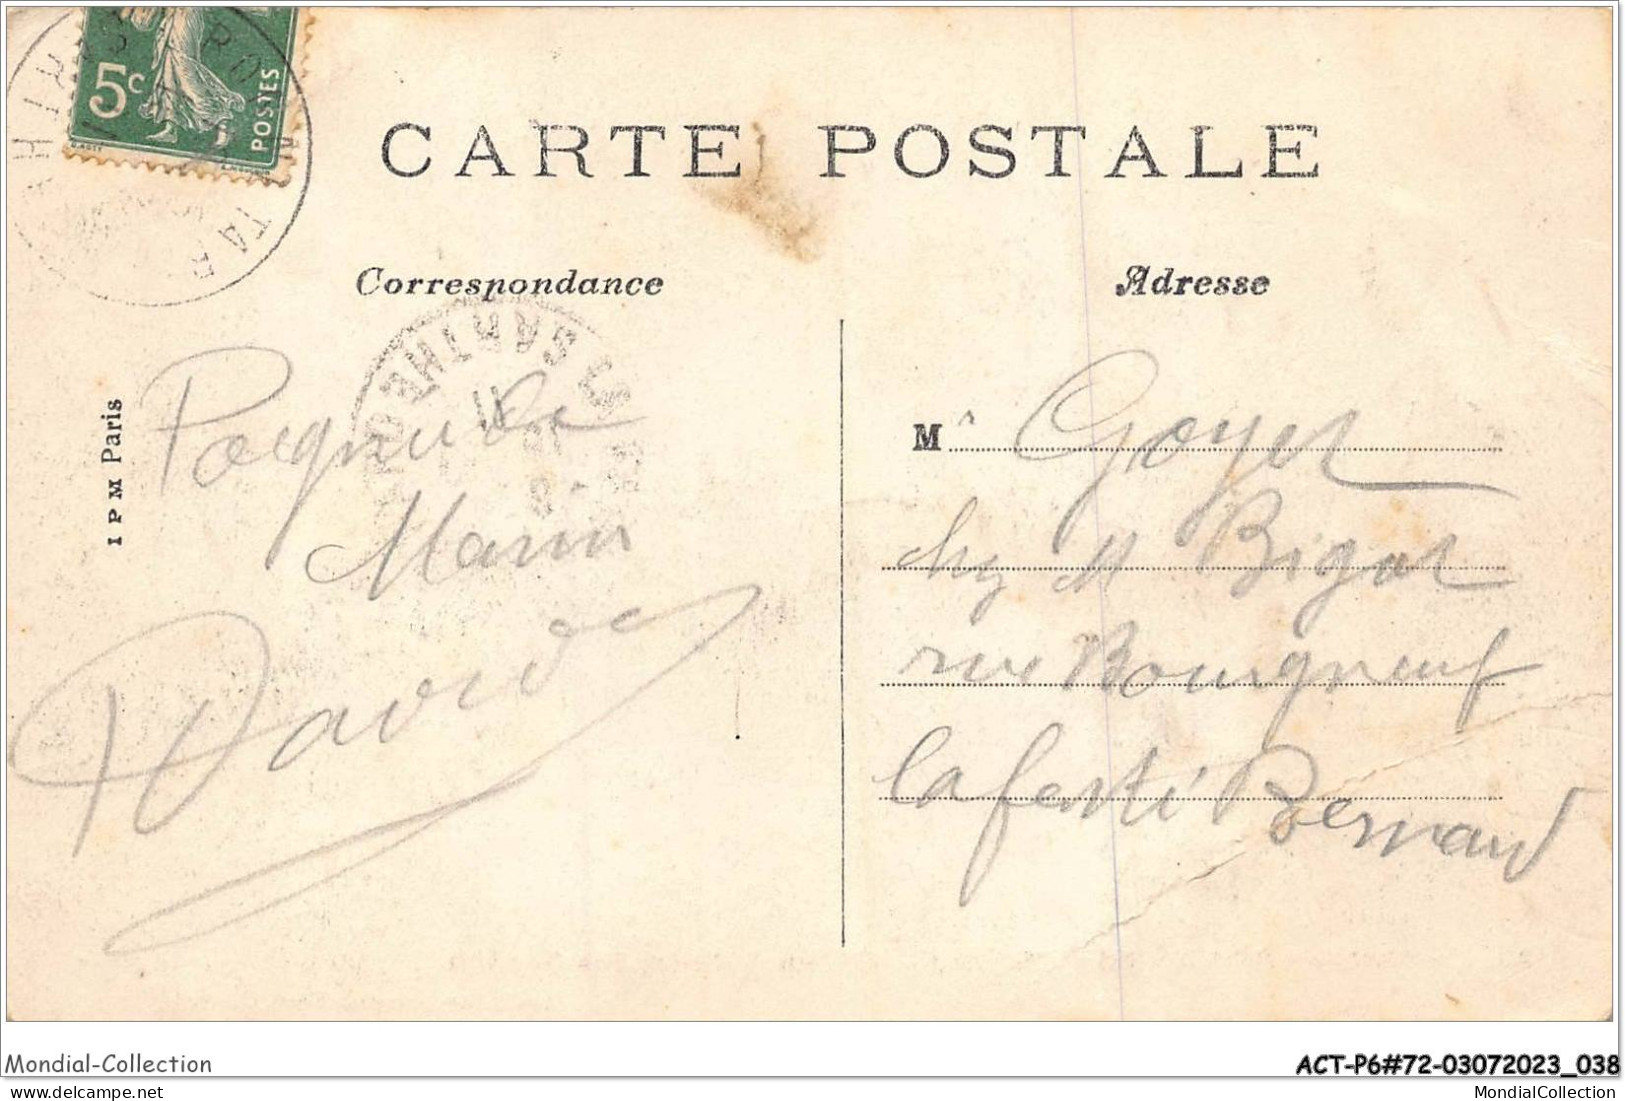 5c
POSTES
CARTE POSTALE
Correspondance
Adresse
SARTHE
11
I P M Paris
Marin
David
Mr Goyer
chez M Bigot
rue Bourgneuf
la ferté Bernard
Mondial-Collection
ACT-P6#72-03072023_038
MondialCollection